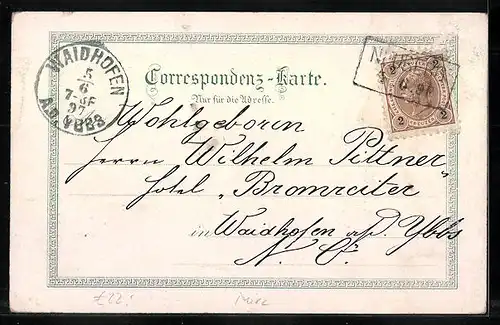 WAIDHOFEN
5/6
97
A.D. YBBS
Correspondenz-Karte.
Nur für die Adresse.
2 2
2 2
Wohlgeboren
Herrn Wilhelm Pittner
Hotel „Bromreiter"
in Waidhofen a/d. Ybbs
N. Ö.
£22.